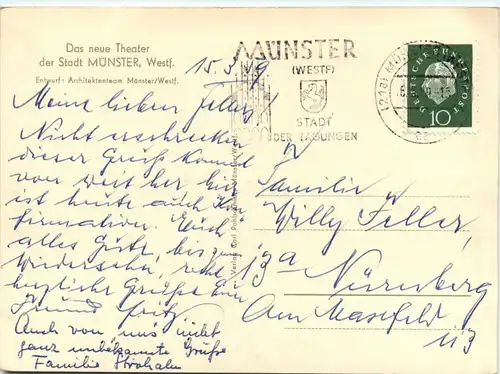 Das neue Theater
der Stadt MÜNSTER, Westf.
Entwurf: Architektenteam Münster/Westf.
MÜNSTER
(WESTF)
STADT
DER TAGUNGEN
(21a) MÜNSTER
DEUTSCHE BUNDESPOST
10
15.3.
Meine lieben Feller!
Nicht erschrecken
dieser Gruß kommt
von weit her, hier
ist heute auch Kon-
firmation. Euch
alles Gute, bis zum
Wiedersehn, recht
herzliche Grüße Euer
Freund Fritz.
Auch von uns nicht
ganz unbekannte Grüße
Familie
Familie
Willy Feller,
13a Nürnberg
Am Maxfeld
113